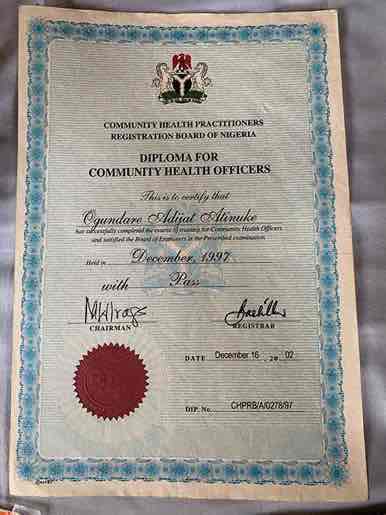 COMMUNITY HEALTH PRACTITIONERS
REGISTRATION BOARD OF NIGERIA
DIPLOMA FOR
COMMUNITY HEALTH OFFICERS
This is to certify that
Ogundare Adijat Atinuke
has successfully completed the course of training for Community Health Officers
and satisfied the Board of Examiners in the Prescribed examination.
Held in December, 1997.
with Pass
CHAIRMAN REGISTRAR
DATE December 16, 20 02
DIP. No. CHPRB/A/0278/97